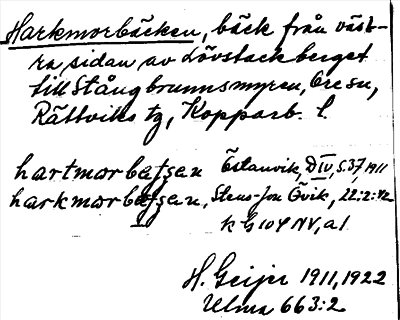 Harkmorbäcken, bäck från väst-
ra sidan av Lövstackberget
till Stångbrunnsmyren, Ore sn,
Rättviks tg, Kopparb. l.
hartmorbetsen Östanvik, DIV, s.37, 1911
harkmorbetsen, Stens-Jon Övik, 22:2:42
k G 104 NV, a1
H. Geijer 1911, 1922
Ulma 663:2